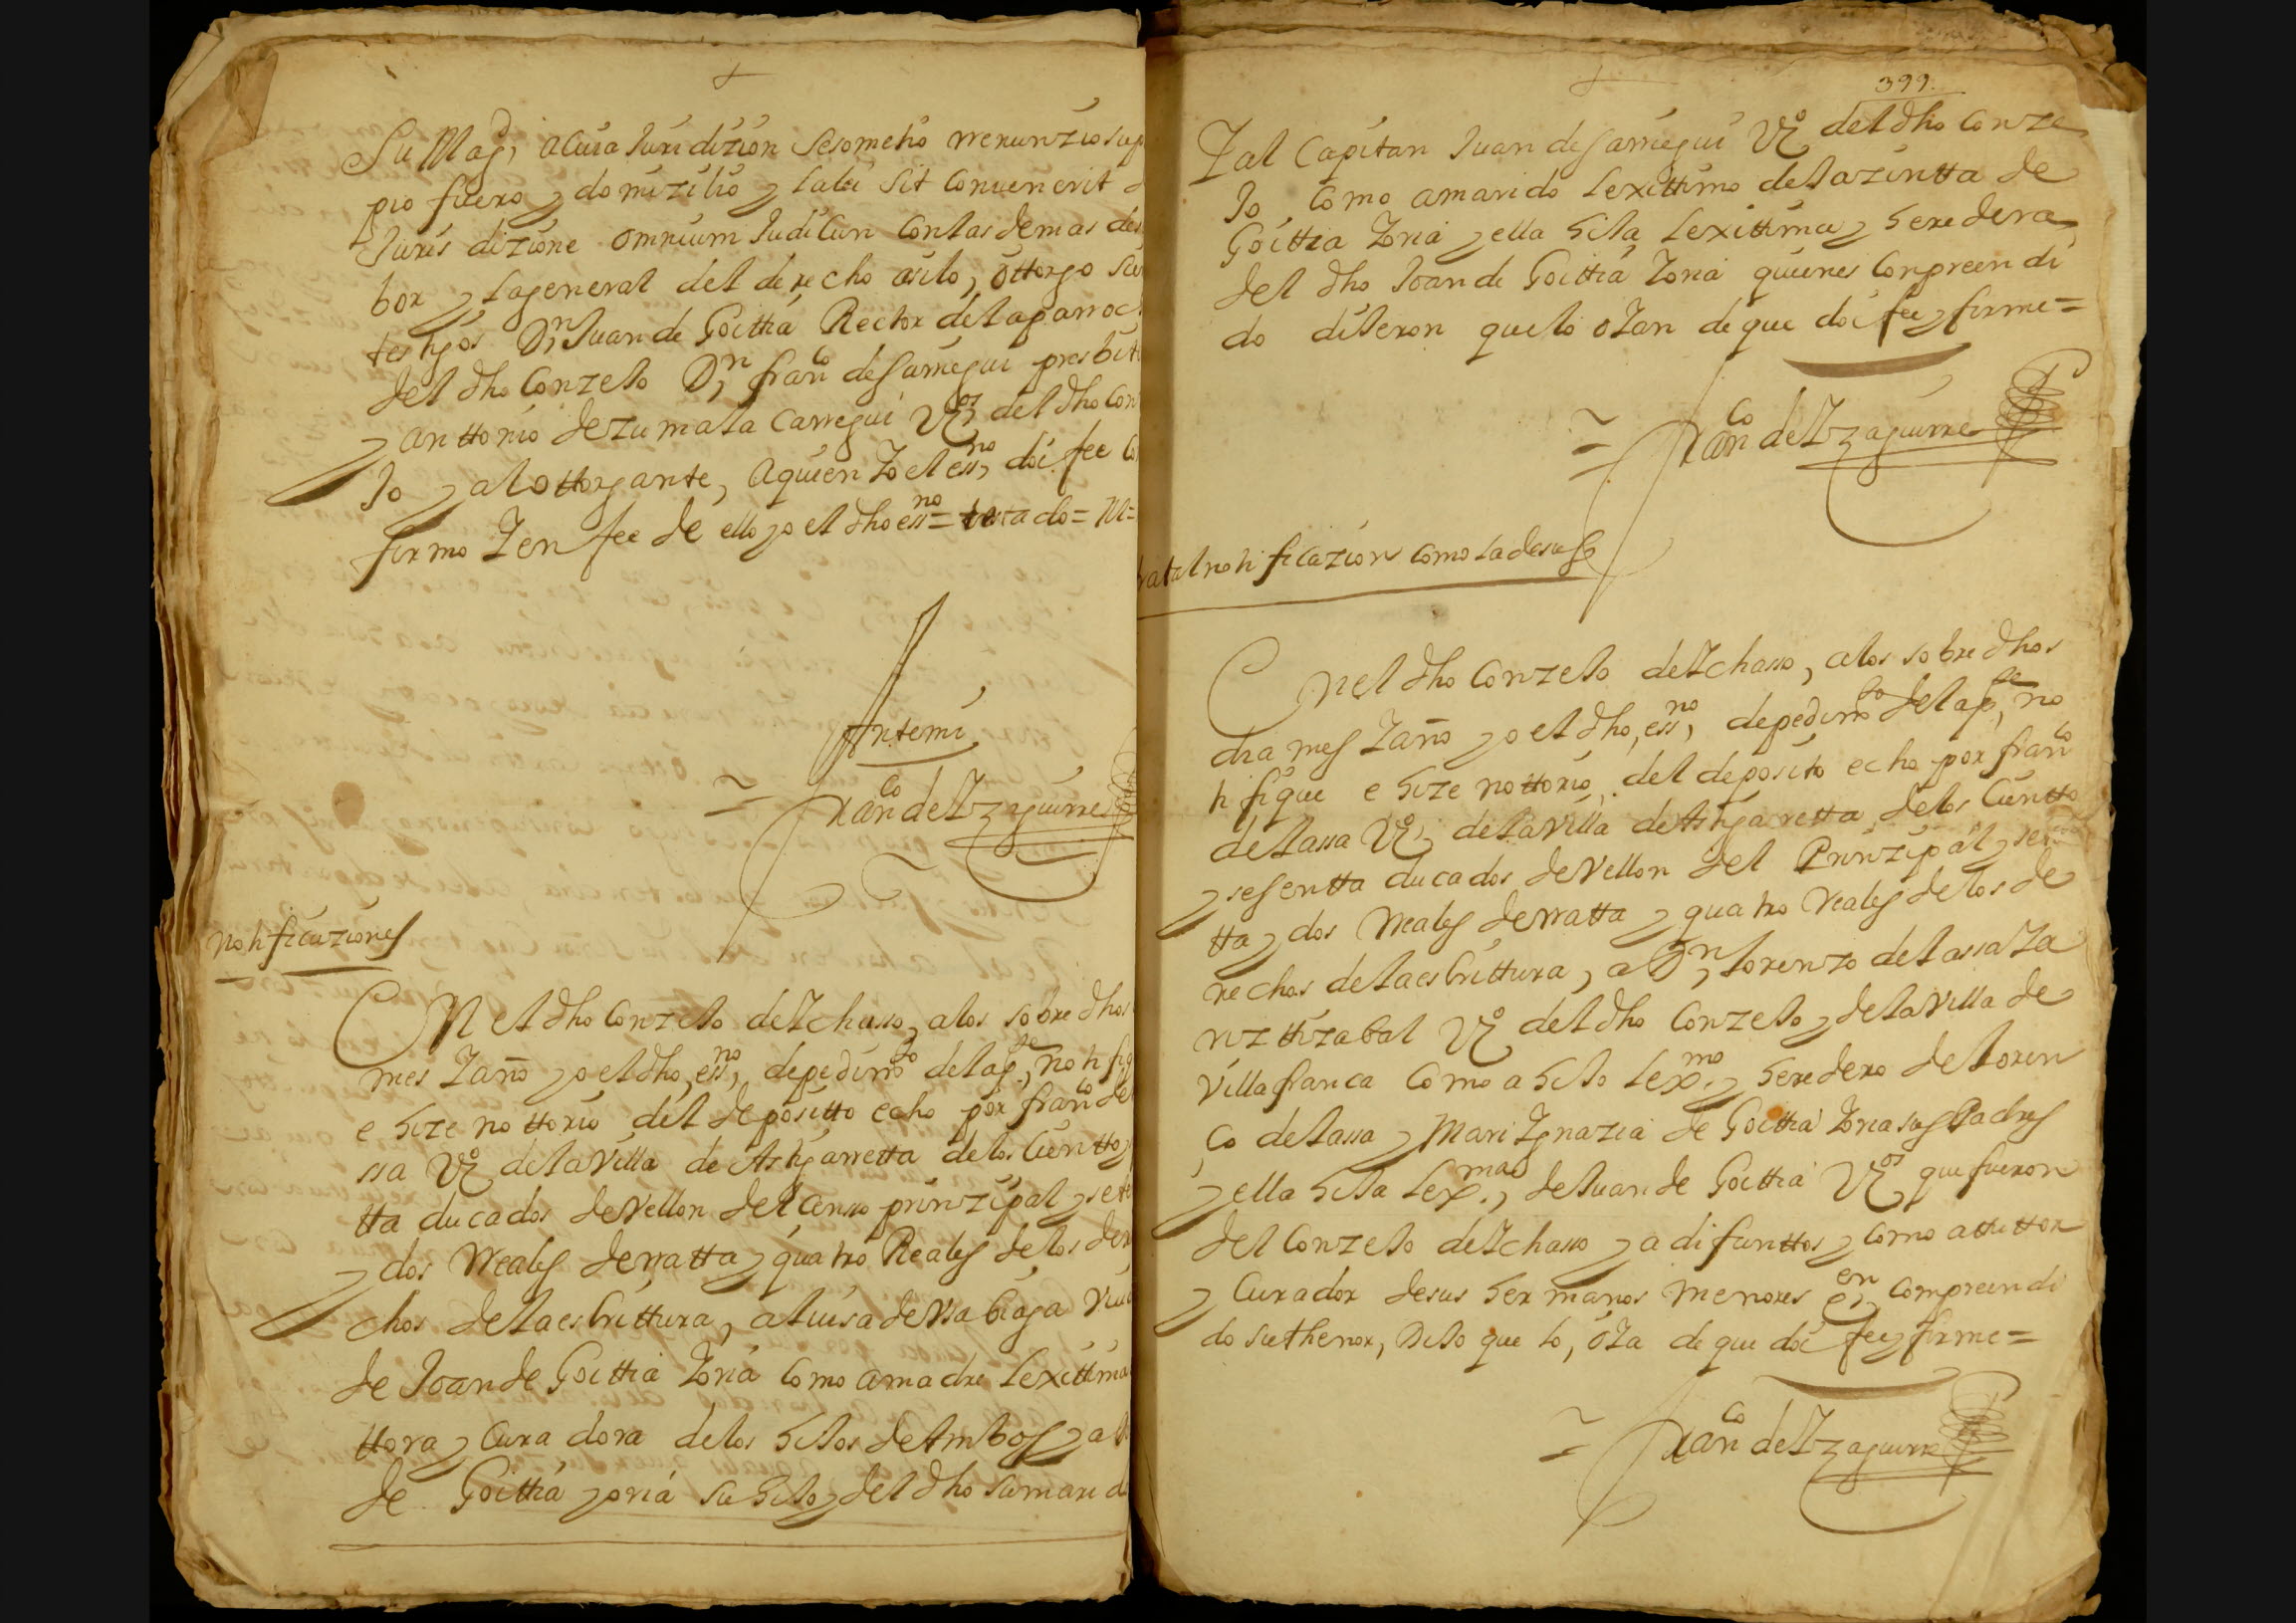 Su Mag, a cuia Juridizion sesometio rrenunzio su p
pio fuero y domizilio y la lei sit convenerit d
Juris dizione omnium Judicun con las demas de
bor y la general del derecho asilo, ottorgo si
testigos Dn Juan de Goittia Rector de la parroc
del dho Conzelo Dn franco de Sarregui presbit
y anttonio de zumala carregui Vos del dho Con
Jo y al ottorgante, a quien Yo el essno, doi fee Co
firmo Y en fee de ello yo el dho essno = ta do = M =
Antemi
= Franco de Yzaguirre
notificaziones
En el dho Conzelo de Ychasso, a los sobre dhos
mes Y año yo el dho, essno, de pedimto de la pte, notifiq
e hize nottorio del deposito echo por franco de
ssa Vo de la Villa de Astigarretta de los Cientto y
tta ducados de Vellon del Censo prinzipal y sete
y dos Rreales de rratta y quatro Reales de los der
chos de la escrittura, a luisa de Vsabiaga Viu
de Joan de Goittia Zoria como a madre Lexittima
ttora y Cura dora de los hilos de Ambos y a
de Goittia zoria su hilo y del dho su mari d
399.
Y al Capitan Juan de Sarregui Vo del dho Conze
Jo, como a marido lexittimo de Jazintta de
Goittia Zoria y ella hila Lexittima y heredera
del dho Joan de Goittia Zoria quienes Conpreendi
do dileron que lo oian de que doi fee y firme =
= Franco de Yzaguirre
tal notificazion como la de suso
En el dho Conzelo de Ychasso, a los sobre dhos
dia mes Y año yo el dho, essno, de pedimto de la pte, no
tifique e hize nottorio, del deposito echo por franco
de lassa Vo de la Villa de Astigarretta de los Cientto
y sesentta ducados de Vellon del Prinzipal y se
tta y dos Rreales de rratta y quatro Reales de los de
rechos de la escrittura, a Dn lorenzo de lassa Ya
rizttizabal Vo del dho Conzelo y de la Villa de
Villafranca como a hilo Lexmo y heredero de loren
ço de lassa y Mari Ygnazia de Goittia Zoria sus Padres
y ella hila Lexma, de Juan de Goittia Vos que fueron
del Conzelo de Ychasso ya difunttos y como a ttuttor
y Curador de sus hermanos menores en compreendi
do su thenor, Dilo que lo, oia de que doi fee y firme =
= Franco de Yzaguirre